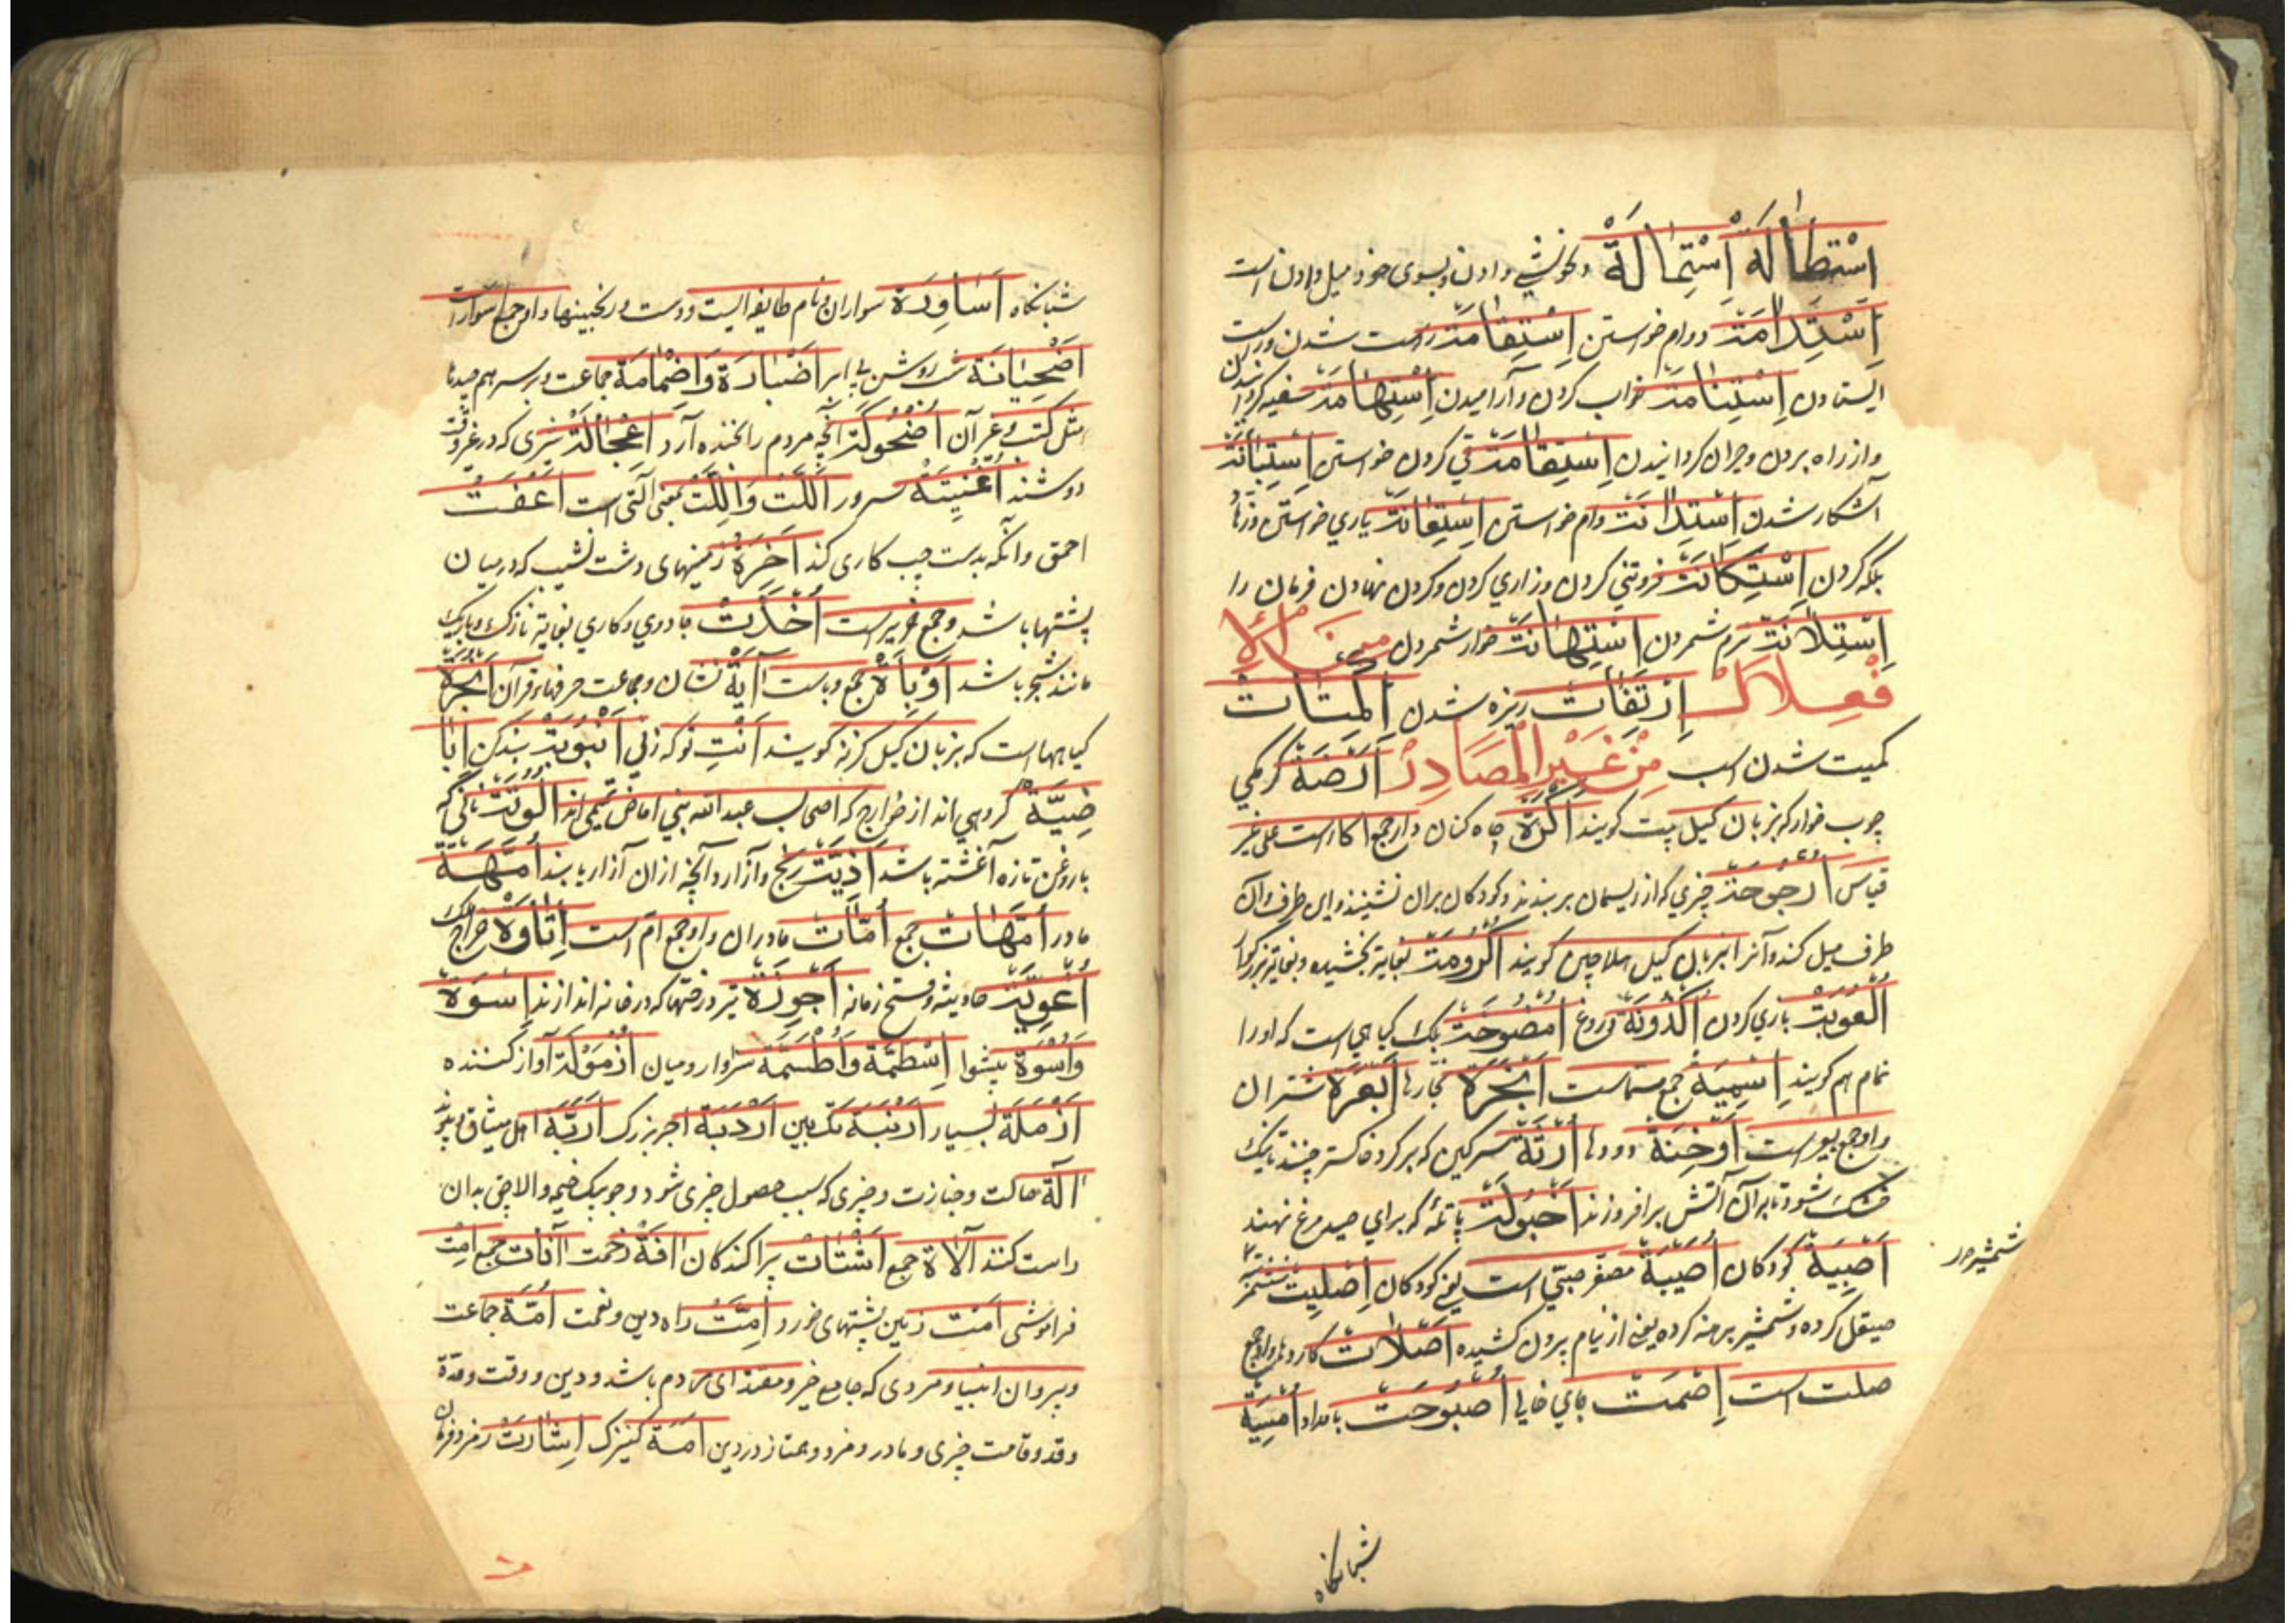 اِسْتِطَالَةٌ اِسْتِمَالَةٌ دلخوشی دادن و بسوی خود میل دادن است
اِسْتِدَامَتْ دوام خواستن اِسْتِقَامَتْ راست شدن و راست
ایستادن اِسْتِنَامَتْ خواب کردن و آرامیدن اِسْتِهَامَتْ
و از راه بردن و حیران گردانیدن اِسْتِقَامَتْ قی کردن خواستن اِسْتِبَانَتْ
آشکار شدن اِسْتِدَانَتْ وام خواستن اِسْتِعَانَتْ یاری خواستن
کردن اِسْتِكَانَتْ فروتنی کردن و زاری کردن و گردن نهادن فرمان را
اِسْتِلَانَتْ نرم شمردن اِسْتِهَانَتْ خوار شمردن من الا
فعلال اِرْتِفَات ریزه شدن
کمیت شدن اسب مِنْ غَیْرِ الْمَصَادِرْ اَرَضَةٌ کرمکی
چوب خوار که بزبان گیل پیت گویند اَكَرَة چاه کنان و او جمع اکار است علی غیر
قیاس اُرْجُوحَتْ چیزی که از ریسمان بر بندند و کودکان بران نشینند و این طرف و آن
طرف میل کند و آنرا بزبان گیل هلاچین گویند اُكْرُومَتْ بغایة بخشیده و بغایة بزرگوار
اُلْعُوبَتْ بازی کردن اُكْذُوبَةٌ دروغ یک گیاهی است که او را
تمام هم گویند اَسْمِیَة جمع سماست اَبْخِرَة بخارها اَبْعِرَة شتران
و او جمع بعیر است اَدْخِنَة دودها اُرْثَة سرگین که بر گرد خاکستر چینند تا نیک
خشک شود تا بر آن آتش برافروزند اُحْبُولَتْ پاتله که برای صید مرغ نهند
اَصْبِیَة کودکان اُصَیْبِیَة مصغر صبی است یعنی کودکان اِصْلِیتْ
شمشیر مرد
صیقل کرده و شمشیر برهنه کرده یعنی از نیام بیرون کشیده اَصْلَاتْ کاردها و او جمع
صلت است اِصْمِتْ جای خالی اُصْبُوحَتْ بامداد اُمْسِیَة
شبانگاه
شبانگاه اَسَاوِرَة سواران و نام طایفه ایست و دست ورنجینها و او جمع سوار است
اِضْحِیَانَة شب روشن بی ابر اِضْبَارَة وَاِضْمَامَة جماعت و بر سر هم
مثل کتب و غیر آن اُضْحُوكَةٌ آنچه مردم را بخنده آرد اِعْجَالَةٌ شیری که در غیر وقت
دوشند اُغْنِیَتْ سرور اَللَّتْ وَاللَّتْ بمعنی التی است اَعْفَتْ
احمق و آنکه بدست چپ کاری کند اَخِرَةٌ زمینهای دشت نشیب که در میان
پشتها باشد و جمع خریر است اُخْذَتْ جادوی و کاری بغایة نازک و باریک
مانند سحر باشد اَوْبَاة جمع وباست آیَةٌ نشان و جماعت حرفهای قرآن
گیاهها است که بزبان گیل گزنه گویند اَنْتِ تو که زنی اُنْبُوبَتْ بند کن اَبَا
ضِیَّة گروهی اند از خوارج که اصحاب عبدالله بنی اباض تمیمی اند اَلُوقَتْ نانی که
با روغن تازه آغشته باشد اَذِیَّتْ رنج و آزار و آنچه ازان آزار یابند اُمَّهَة
مادر اُمَّهَات جمع اُمَّات مادران و او جمع ام است اِتَاوَة خراج ملک
اُغْوِیَّتْ حادثه زمانه اَجْوِزَة تیر درختها که در خانه اندازند اِسْوَة
وَاُسْوَة پیشوا اُسْطُمَّة وَاُطْسُمَّة سزاوار و میان اُزْمُولَة آواز کننده
اَزْمَلَة بسیار اَرْنَبَة تک بینی اِرْدَبَّة آجر بزرگ اَرِبَّة اهل میثاق و پیوند
اٰلَة حالت و جنازت و چیزی که سبب حصول چیزی شود و چوبیک خیمه والاچق بدان
راست کنند اٰلَاة جمع اَشْتَات پراکندگان اٰفَة زحمت اٰفَات جمع اَمْت
فراموشی اَمْت زمین پشتهای خورد اِمَّتْ راه دین و نعمت اُمَّة جماعت
و پیروان انبیا و مردی که جامع خیر و مقتدای مردم باشد و دین و وقت و مدة
و قد و قامت چیزی و مادر و مرد و ممتاز در دین اَمَة کنیزک اِشَارَتْ رمز و فرمان